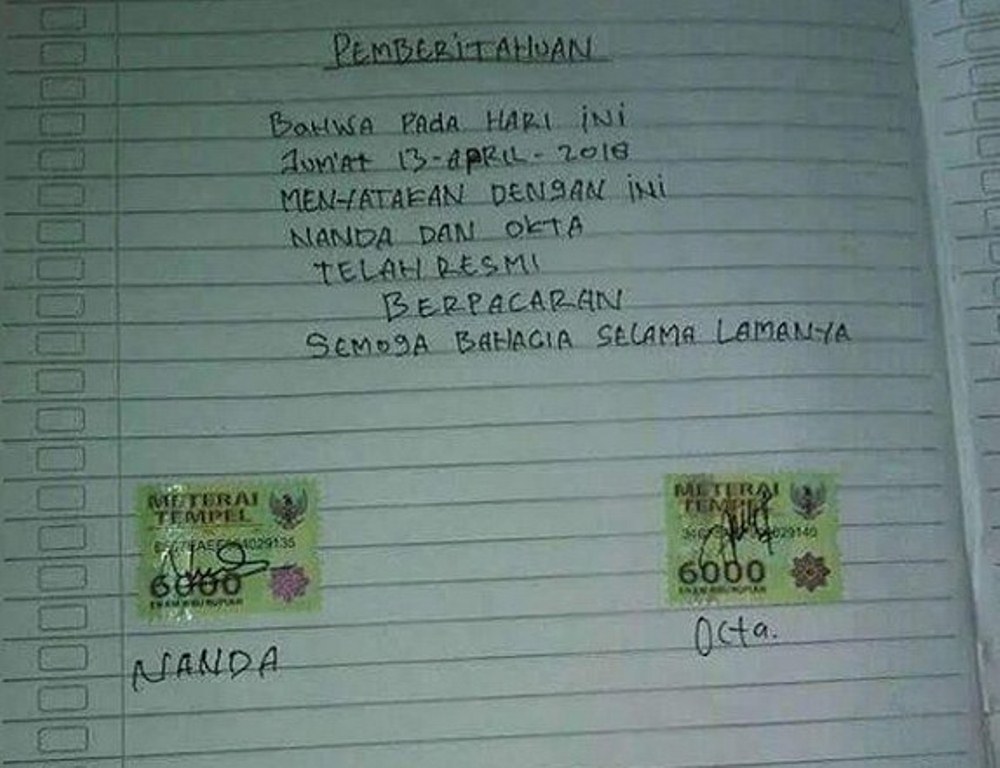 PEMBERITAHUAN
BAHWA PADA HARI INI
JUM'AT 13-APRIL-2018
MENYATAKAN DENGAN INI
NANDA DAN OKTA
TELAH RESMI
BERPACARAN
SEMOGA BAHAGIA SELAMA LAMANYA
METERAI
TEMPEL
6000
ENAM RIBU RUPIAH
NANDA
METERAI
TEMPEL
6000
ENAM RIBU RUPIAH
Octa.